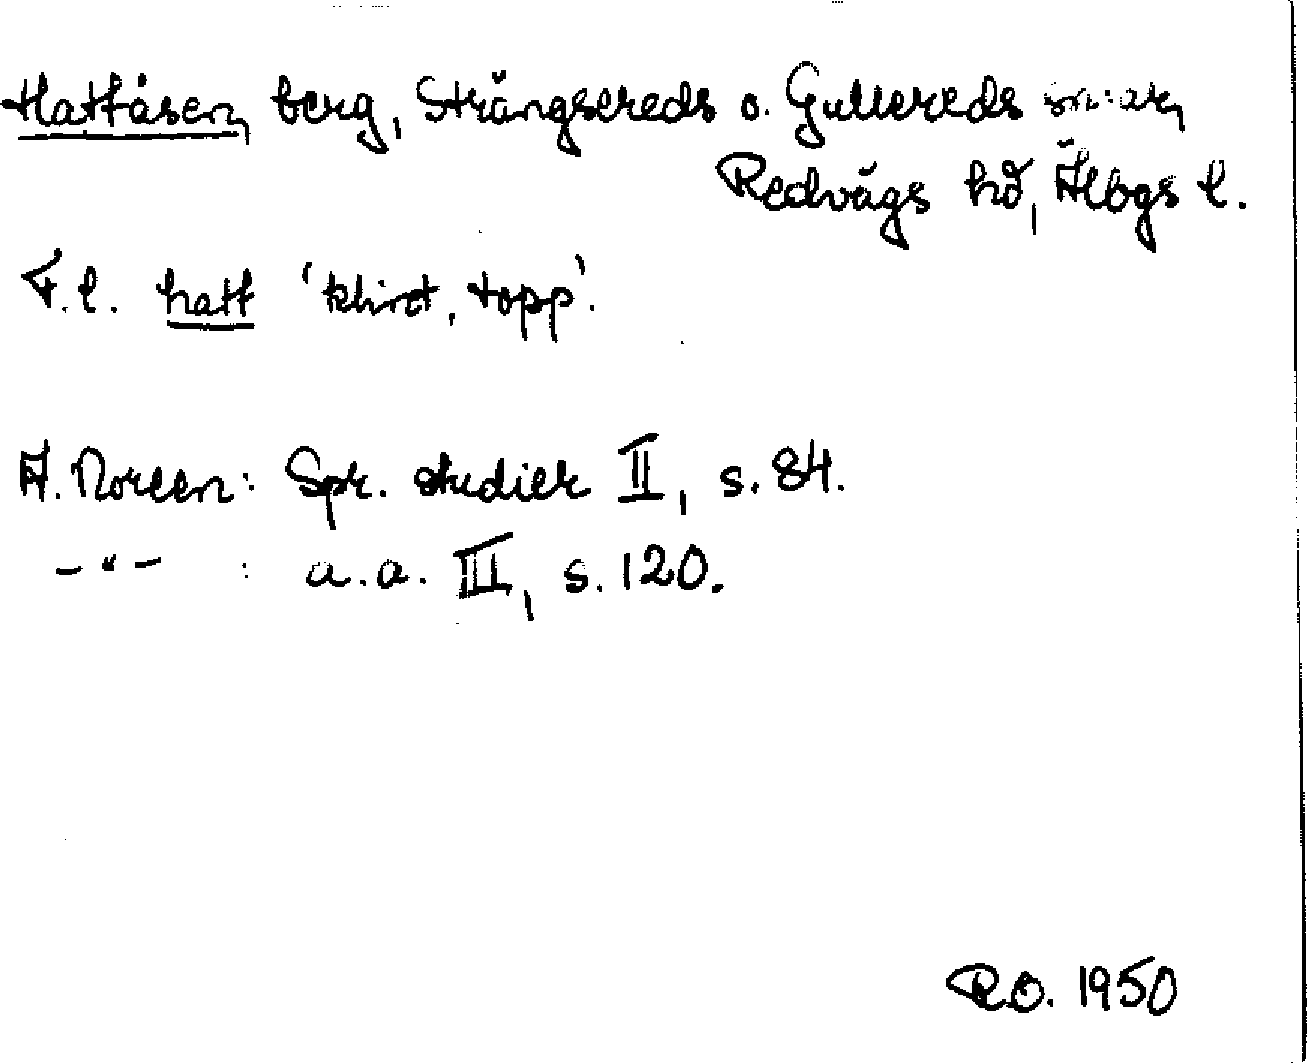 Hattåsen, berg, Strängsereds o. Gullereds sn:ar,
Redvägs hd, Älvbgs l.
F.l. hatt 'klint, topp'.
A. Noreen: Spr. studier II, s. 84.
— " — : a.a. III, s. 120.
R.O. 1950